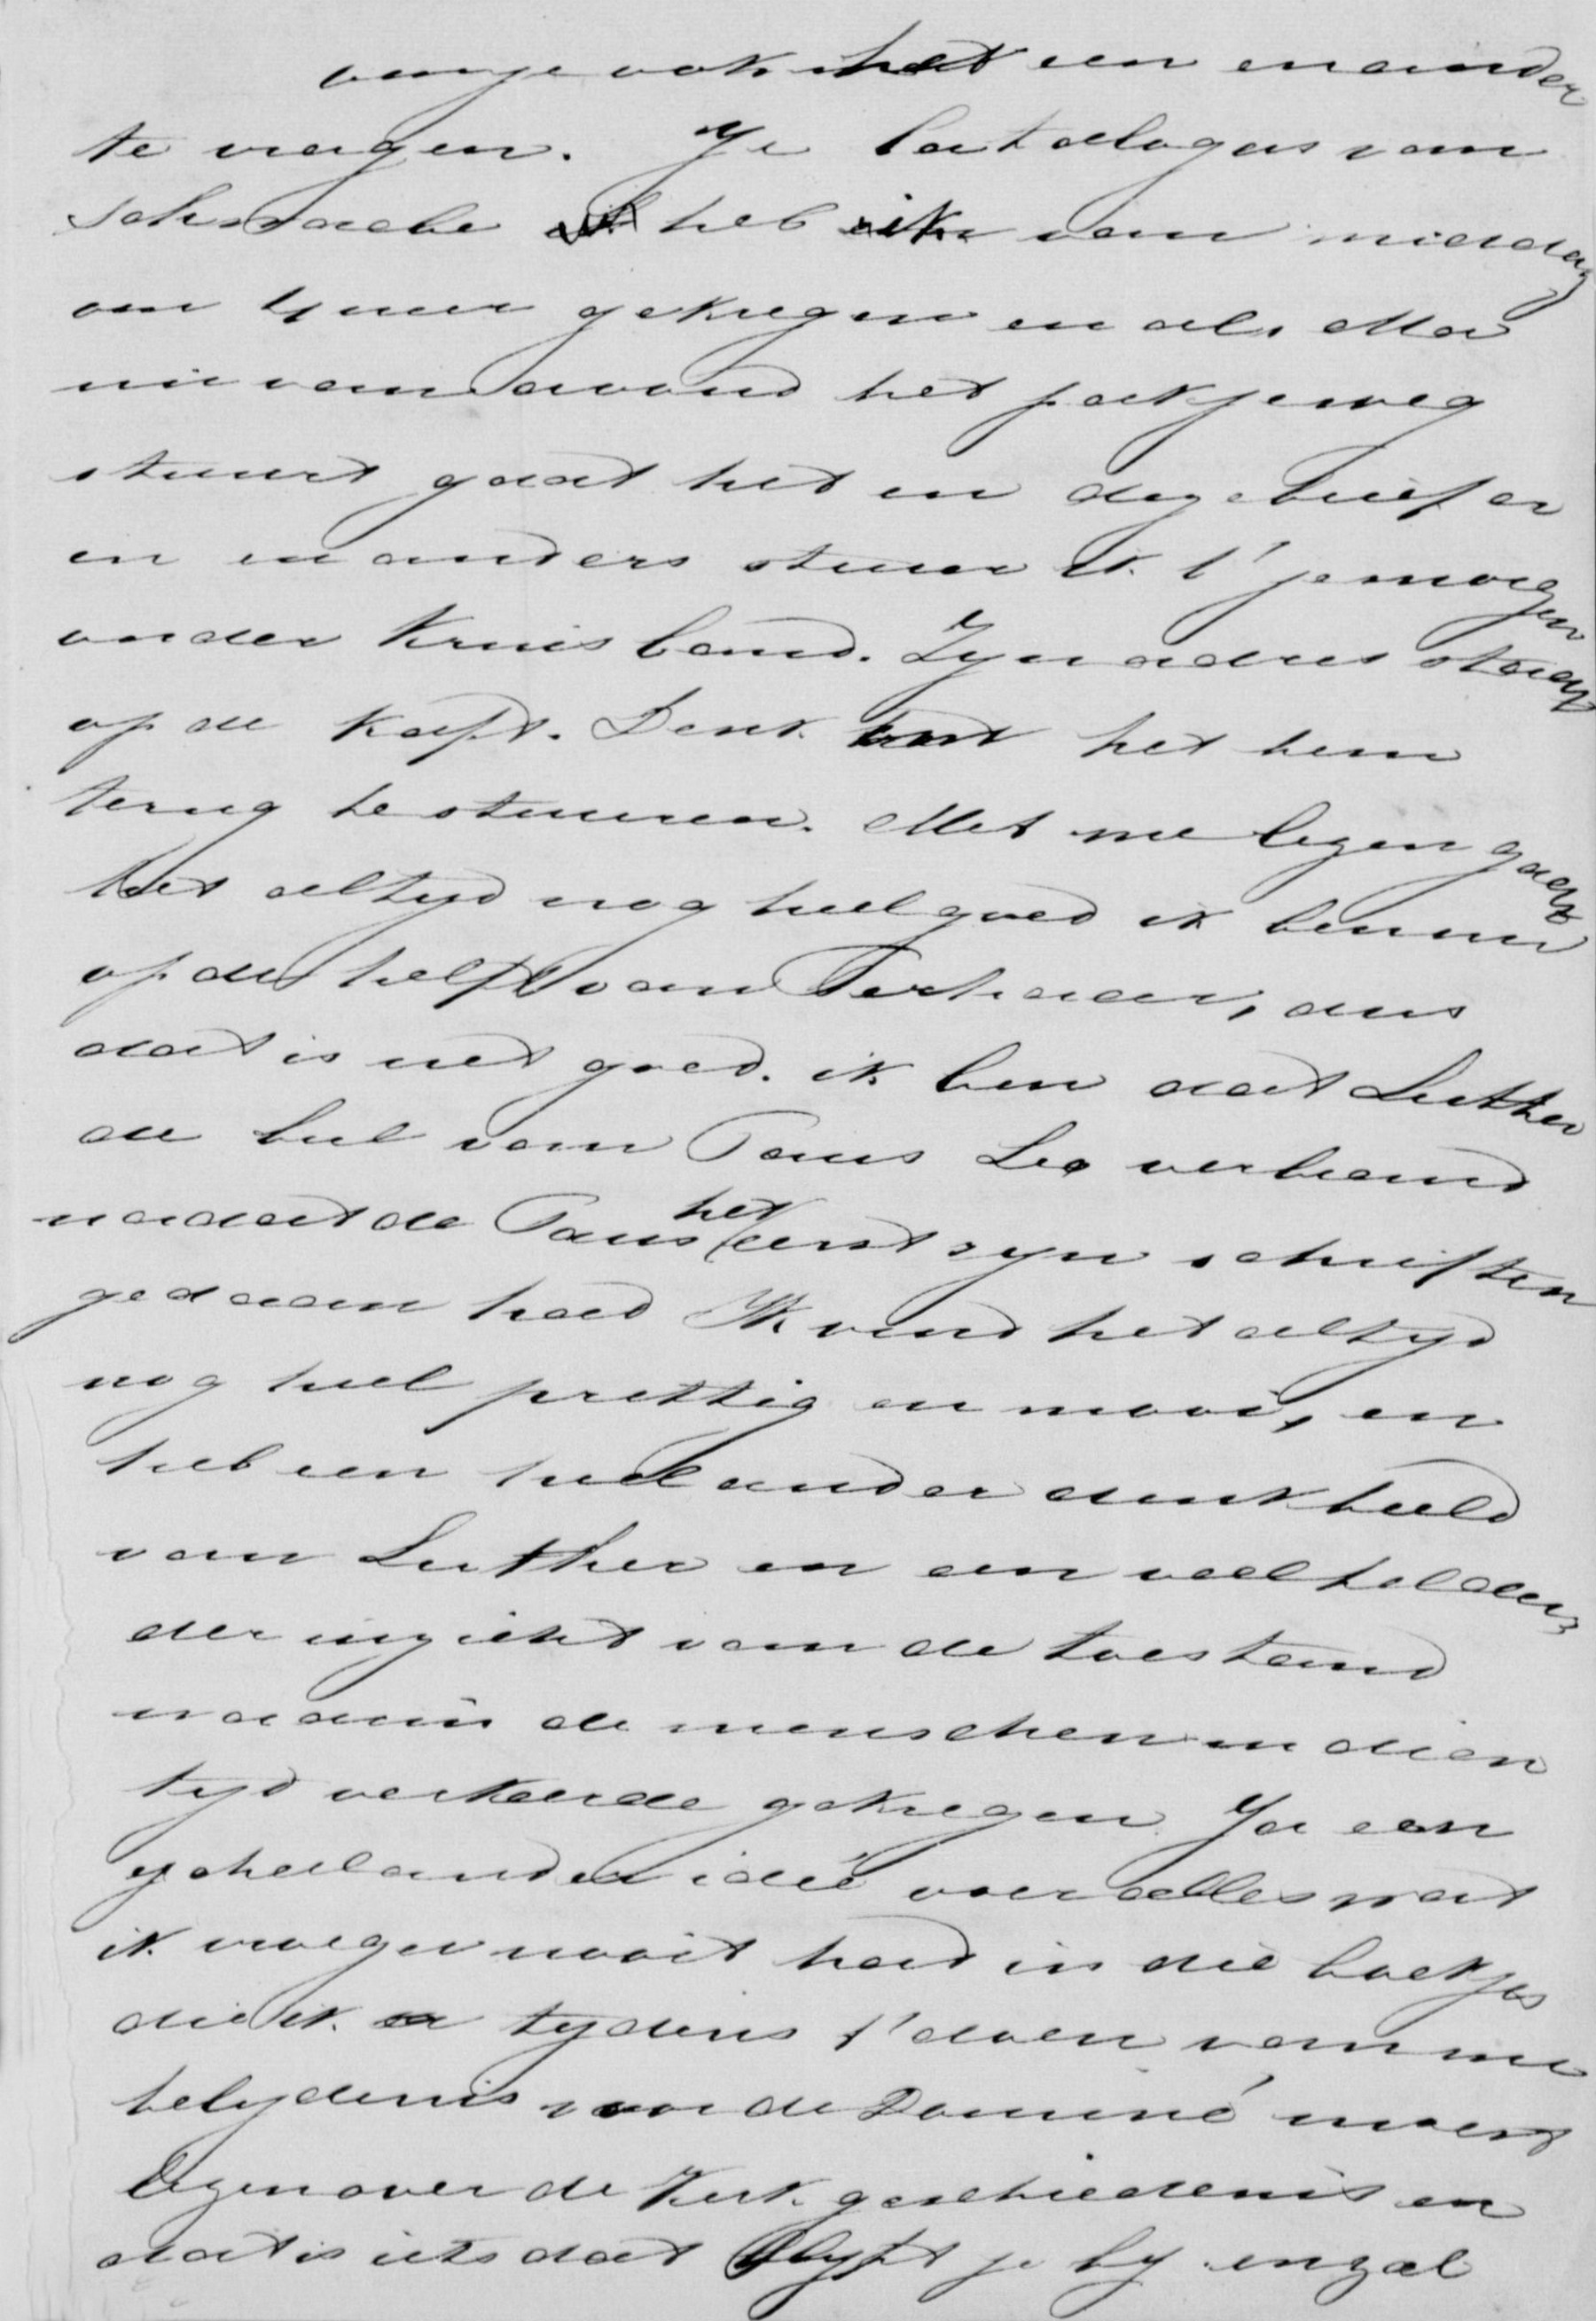 van je ook het een en ander
te vragen. Je Catalogus van
Schwabe heb ik van middag
om 4 uur gekregen en als Ma
nu van avond het pakje weg
stuurt gaat het en deze brief er
in en anders stuur ik t' je morgen
onder Kruisband. Zyn adres staat
op de Kaft. Denk het hem
terug te stuuren. Met me lezen gaat
het altyd nog heel goed ik ben nu
op de helft van Terhaar, dus
dat is net goed. ik ben dat Luther
de bul van Paus Leo verbrand
nadat de Paus het eerst zyn schriften
gedaan had Ik vind het altyd
nog heel prettig en mooi, en
heb een heel ander denkbeeld
van Luther en een veel helder
der inzicht van de toestand
waarin de menschen in dien
tyd verkeerde gekregen. Ja een
geheel ander ideé over alles wat
ik vroeger nooit had in die boekjes
die ik tydens t' doen van me
belydenis voor de Dominé moest
lezen over de Kerk geschiedenis en
dat is iets dat blyft je by en zal